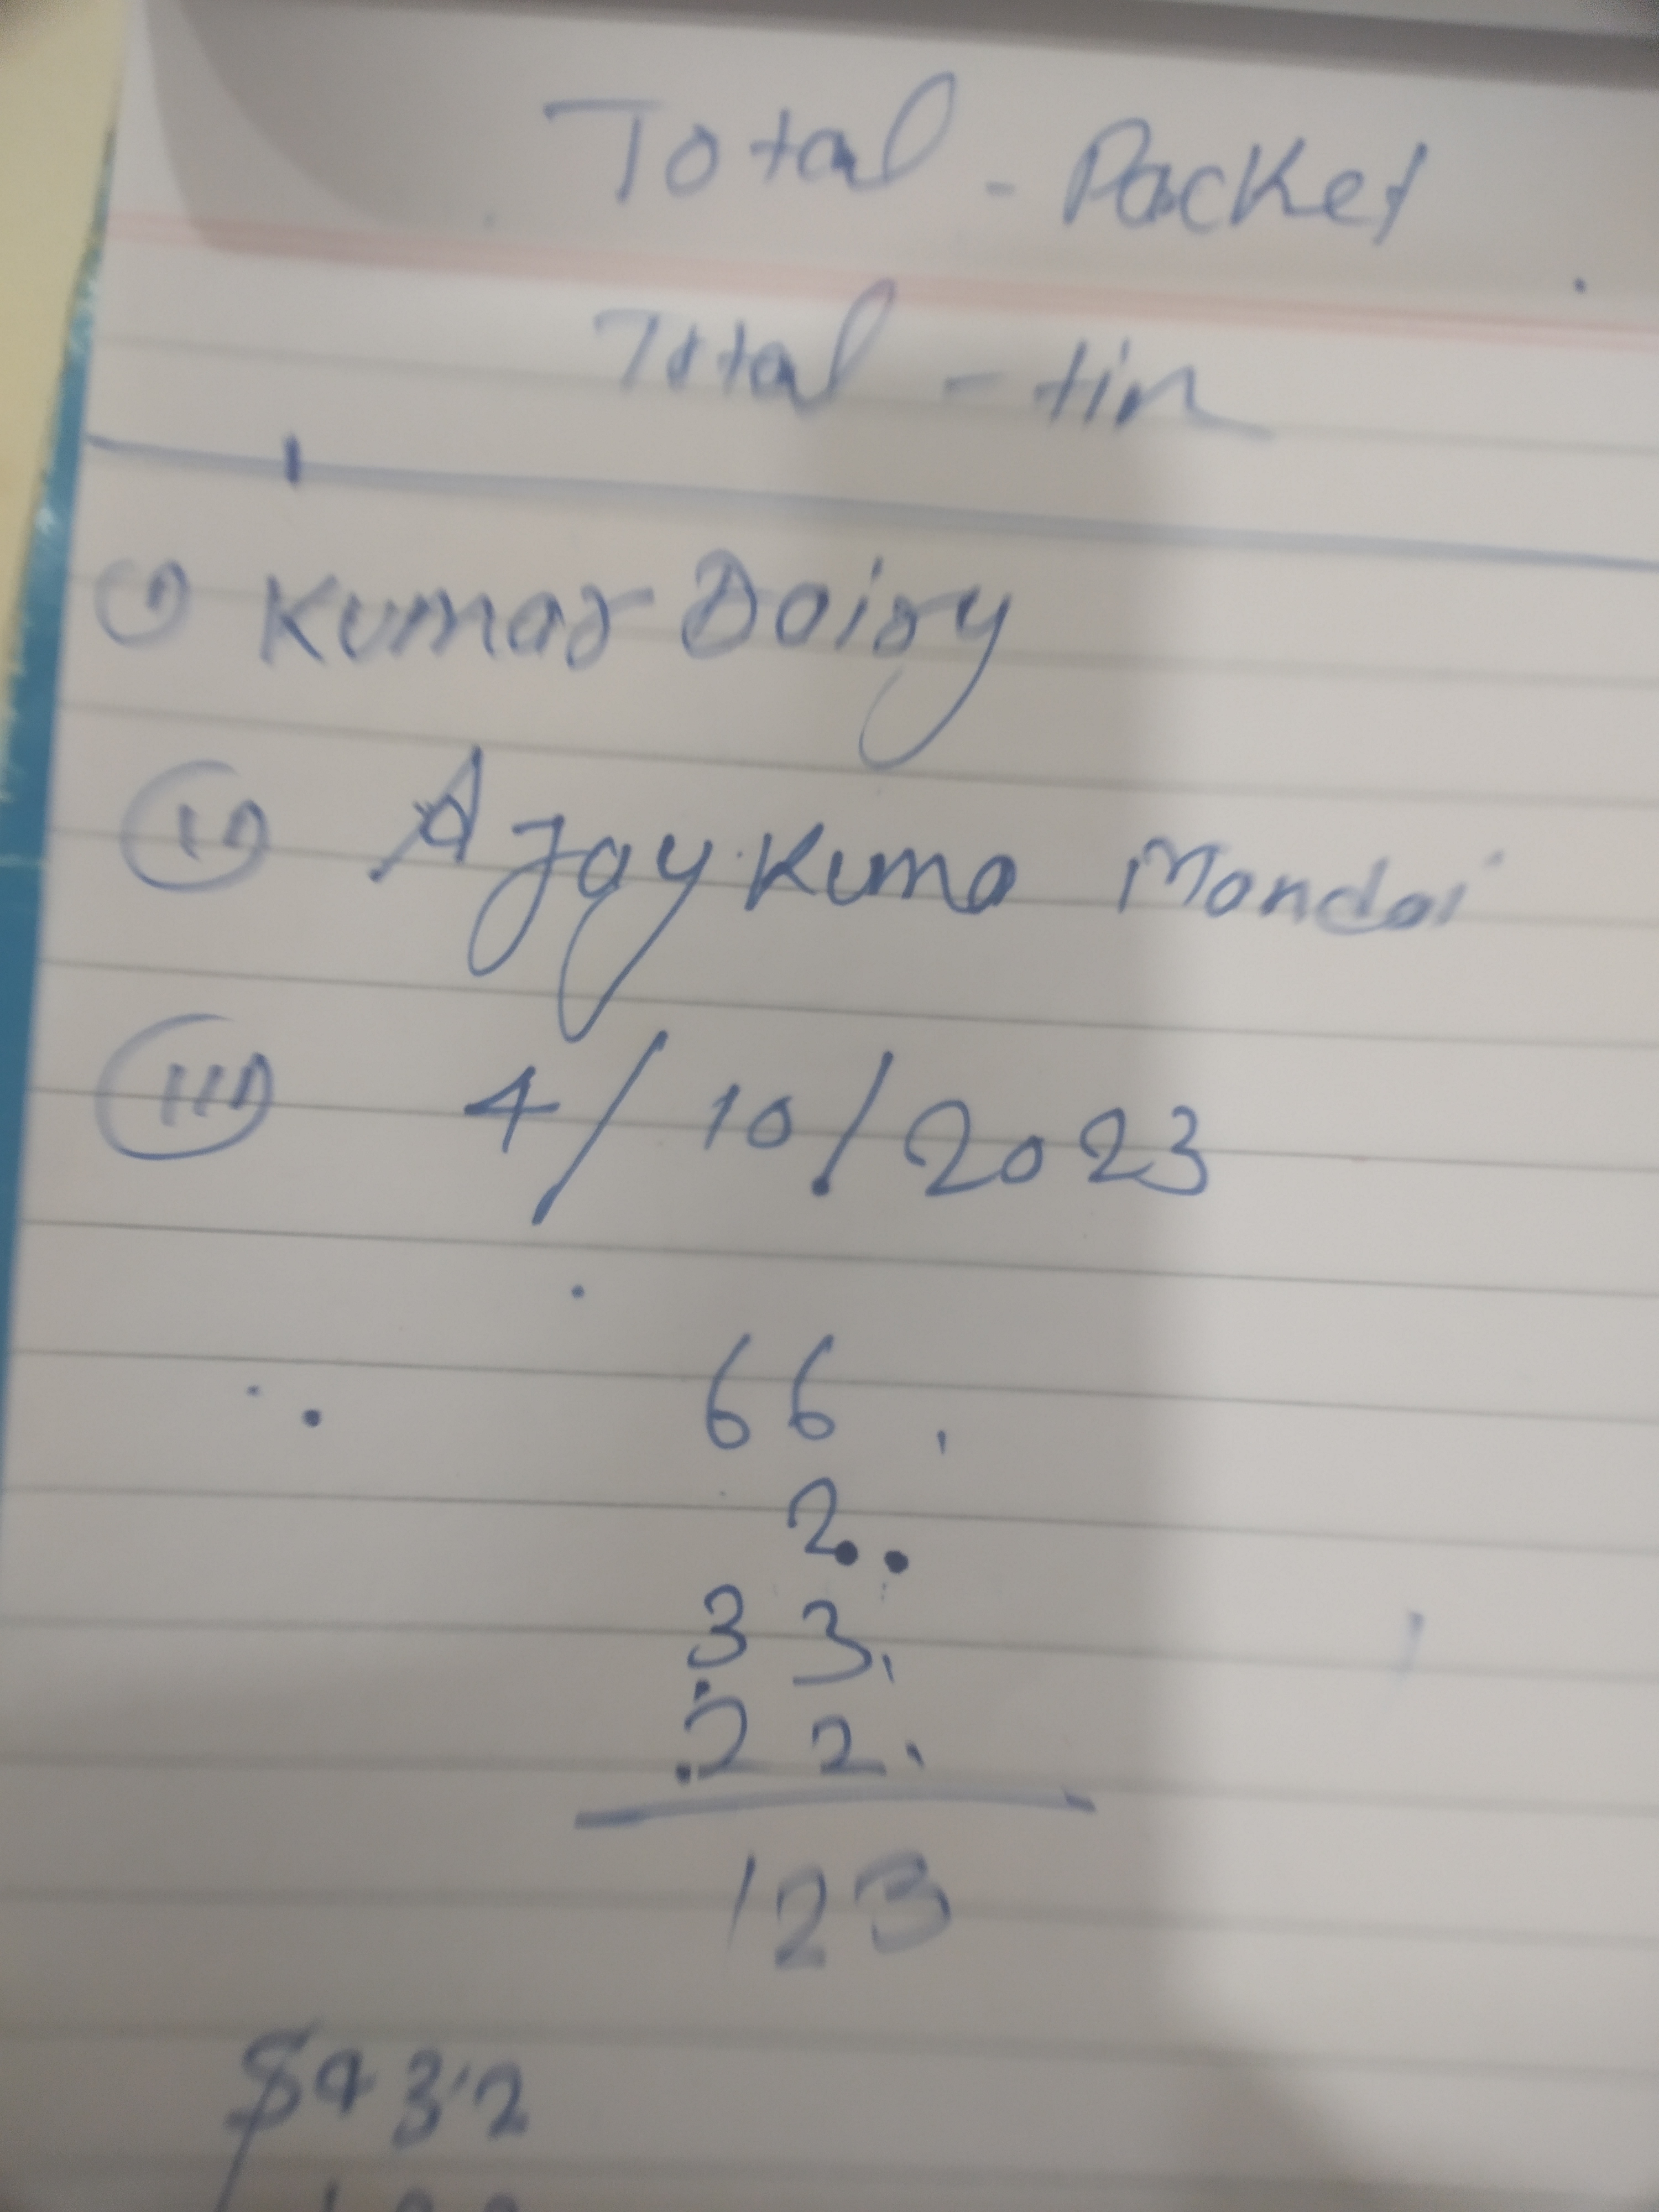 Total - Packet
Total - tin
I Kumar Dairy
II Ajay Kuma Mandal
III 4/10/2023
66
2
33
22
123